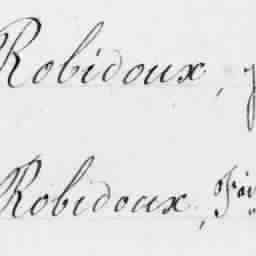 Robidoux,
Robidoux,